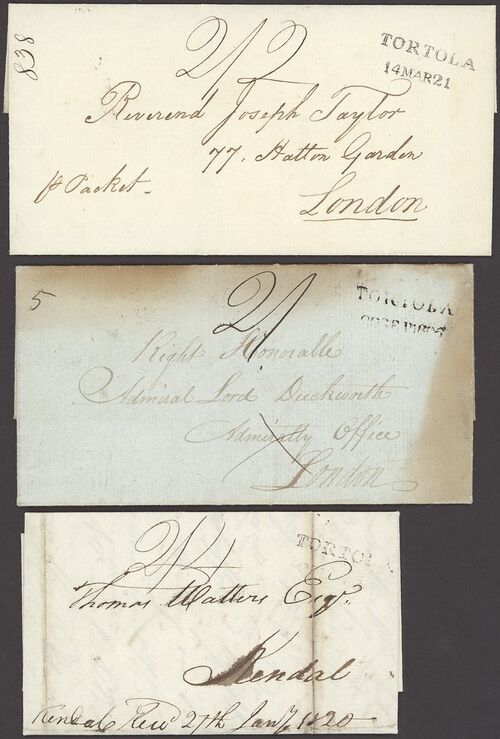 838
2/2
TORTOLA
14MAR21
Reverend Joseph Taylor
77, Hatton Garden
London
Packet
5
2/
TORTOLA
Right Honorable
Admiral Lord Duckworth
Admiralty Office
London
2/4
TORTOLA
Thomas Watters Esqr.
Kendal
Kendal Recd 27th Jany 1820